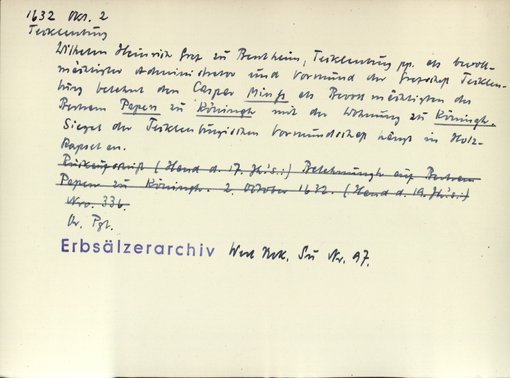 1632 Okt. 2
Tecklenburg
Wilhelm Heinrich Graf zu Bentheim, Tecklenburg pp. als bevoll-
mächtigter Administrator und Vormund der Grafschaft Tecklen-
burg belehnt den Caspar Minss als Bevollmächtigten des
Bertram Papen zu Köningh mit der Wohnung zu Köningh.
Siegel der Tecklenburgischen Vormundschaft hängt in Holz-
kapsel an.
Rückaufschrift (Hand d. 17. Jh.s:) Belehnungh auf Bertram
Papen zu Köningh. 2. Oktober 1632. (Hand d. 19. Jh.s:)
Nro. 336.
Or. Pgt.
Erbsälzerarchiv Werl Urk. Nr. 97.